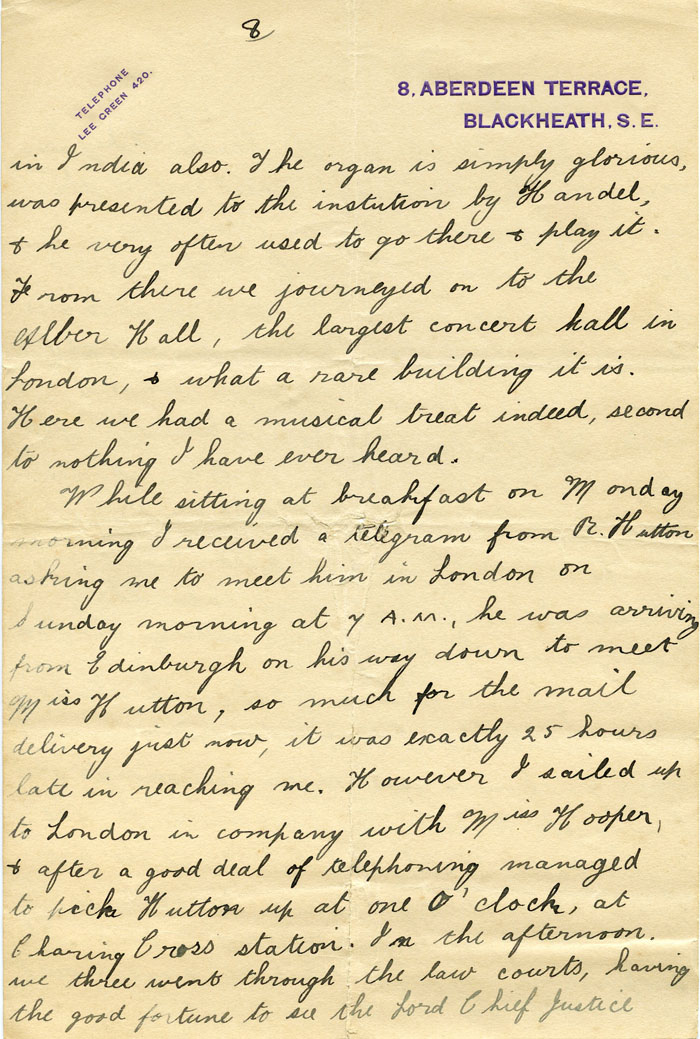 8
TELEPHONE
LEE GREEN 420.
8, ABERDEEN TERRACE,
BLACKHEATH, S.E.
in India also. The organ is simply glorious,
was presented to the instution by Handel,
& he very often used to go there & play it.
From there we journeyed on to the
Alber Hall, the largest concert hall in
London, & what a rare building it is.
Here we had a musical treat indeed, second
to nothing I have ever heard.
While sitting at breakfast on Monday
morning I received a telegram from R. Hutton
asking me to meet him in London on
Sunday morning at 7 A.M., he was arriving
from Edinburgh on his way down to meet
Miss Hutton, so much for the mail
delivery just now, it was exactly 25 hours
late in reaching me. However I sailed up
to London in company with Miss Hooper,
& after a good deal of telephoning managed
to pick Hutton up at one O'clock, at
Charing Cross station. In the afternoon.
we three went through the law courts, having
the good fortune to see the Lord Chief Justice